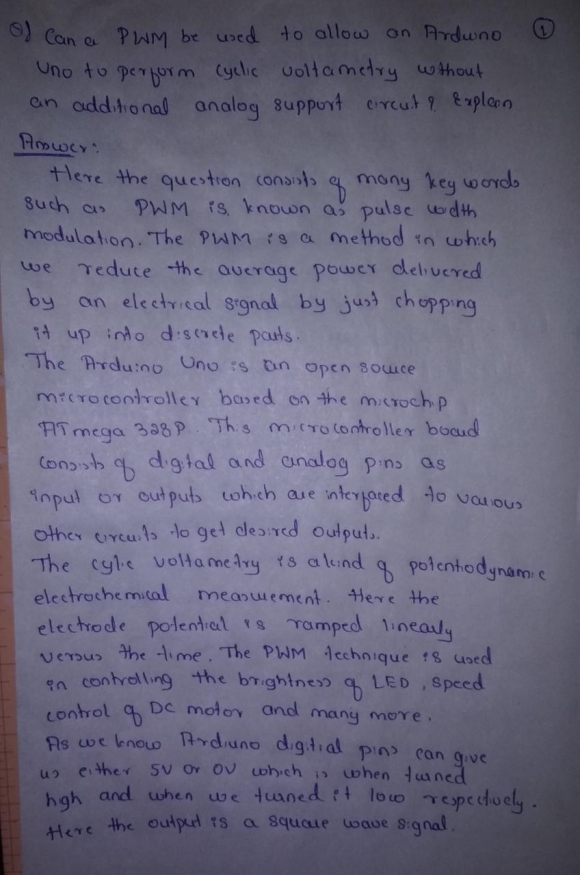 Q) Can a PWM be used to allow an Arduino ①
Uno to perform cyclic voltametry without
an additional analog support circut? Explain
Answer:
Here the question consists of many key words
such as PWM is known as pulse width
modulation. The PWM is a method in which
we reduce the average power delivered
by an electrical signal by just chopping
it up into discrete parts.
The Arduino Uno is an open source
microcontroller based on the microchip
ATmega 328P. This microcontroller board
consists of digital and analog pins as
input or outputs which are interfaced to various
other circuits to get desired outputs.
The cylic voltametry is a kind of potentiodynamic
electrochemical measurement. Here the
electrode potential is ramped linearly
versus the time. The PWM technique is used
in controlling the brightness of LED, speed
control of DC motor and many more.
As we know Arduino digitial pins can give
us either 5V or 0V which is when turned
high and when we turned it low respectively.
Here the output is a square wave signal.